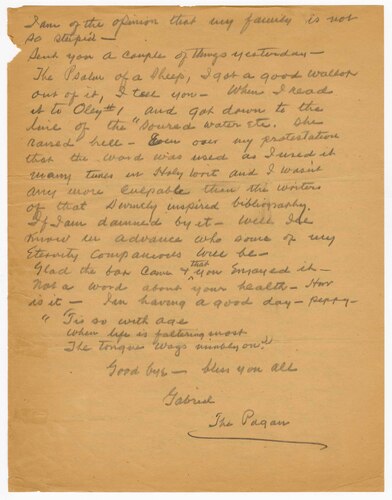 I am of the opinion that my family is not
so stupid —
Sent you a couple of things yesterday —
The Psalm of a Sheep, I got a good wallop
out of it, I tell you — When I read
it to Oley #1 and got down to the
line of the "Soured water etc. She
raised hell — Even over my protestation
that the word was used as I used it
many times in Holy Writ and I wasn't
any more culpable then the writers
of that Divinely inspired bibliography.
If I am damned by it — Well I'll
know in advance who some of my
Eternity Companions will be —
Glad the box came & that you enjoyed it —
Not a word about your health — How
is it — I'm having a good day — peppy —
"Tis so with age
When life is faltering most
The tongue wags nimbly on"
Good bye — bless you all
Gabriel
The Pagan